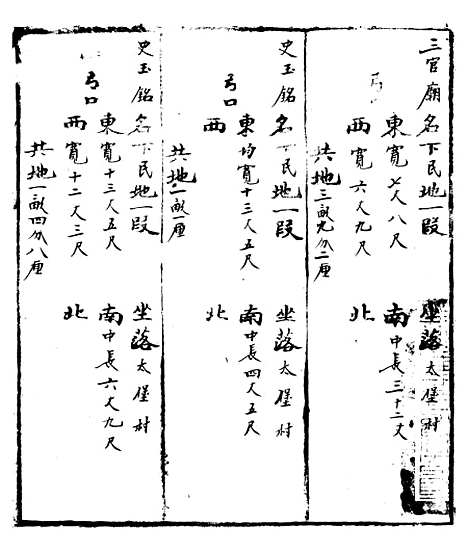 三官廟名下民地一段 坐落太堡村
弓口
東寬七人八尺 南中長三十二丈
西寬六人九尺 北
共地三畝九分二厘
史玉銘名下民地一段 坐落太堡村
弓口
東均寬十三人五尺 南中長四人五尺
西 北
共地一畝一厘
史玉銘名下民地一段 坐落太堡村
弓口
東寬十三人五尺 南中長六人九尺
西寬十二人三尺 北
共地一畝四分八厘